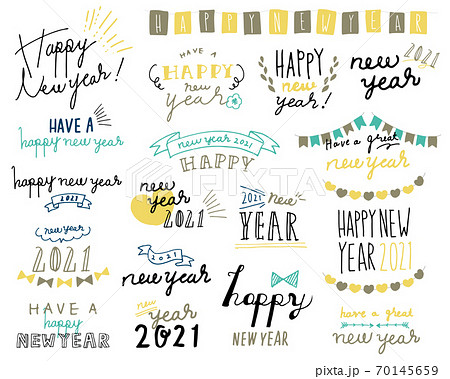 Happy
New year!
HAPPY NEW YEAR
HAVE A
HAPPY
new
year
HAPPY
new
year!
new 2021
year
HAVE A
happy new year
new year 2021
HAPPY
Have a great
new year
happy new year
2021
new
year
2021
2021 new
YEAR
HAPPY NEW
YEAR 2021
new year
2021
2021
new year
happy
NEW YEAR
HAVE A
happy
NEW YEAR
new
year
2021
have a great
new year
PIXTA
pixta.jp - 70145659